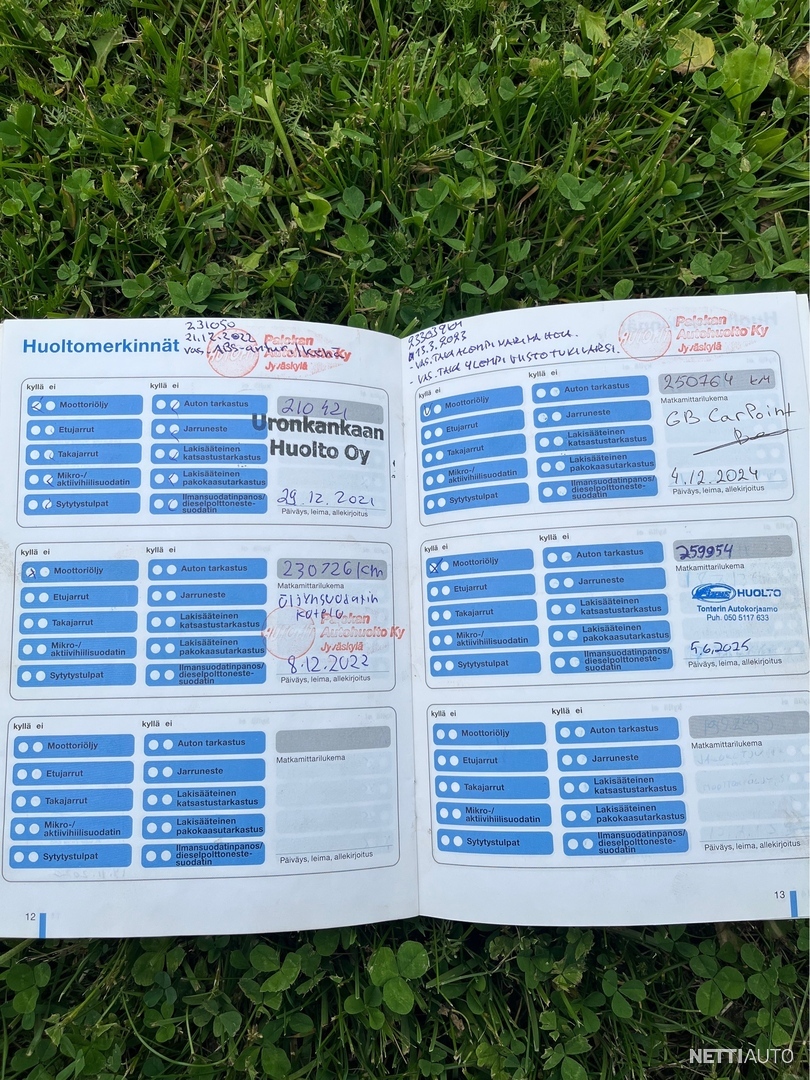 Huoltomerkinnät
231050
21.12.2022
Palokan
Autohuolto Ky
Jyväskylä
kyllä ei
kyllä ei
Moottoriöljy
Auton tarkastus
210 421
Etujarrut
Jarruneste
Uronkankaan
Huolto Oy
Takajarrut
Lakisääteinen
katsastustarkastus
Mikro-/
aktiivihiilisuodatin
Lakisääteinen
pakokaasutarkastus
Sytytystulpat
Ilmansuodatinpanos/
dieselpolttoneste-
suodatin
29.12.2021
Päiväys, leima, allekirjoitus
kyllä ei
kyllä ei
Moottoriöljy
Auton tarkastus
230726 km
Matkamittarilukema
Etujarrut
Jarruneste
öljynsuodatin
Takajarrut
Lakisääteinen
katsastustarkastus
Palokan
Autohuolto Ky
Jyväskylä
Mikro-/
aktiivihiilisuodatin
Lakisääteinen
pakokaasutarkastus
Sytytystulpat
Ilmansuodatinpanos/
dieselpolttoneste-
suodatin
8.12.2022
Päiväys, leima, allekirjoitus
kyllä ei
kyllä ei
Moottoriöljy
Auton tarkastus
Matkamittarilukema
Etujarrut
Jarruneste
Takajarrut
Lakisääteinen
katsastustarkastus
Mikro-/
aktiivihiilisuodatin
Lakisääteinen
pakokaasutarkastus
Sytytystulpat
Ilmansuodatinpanos/
dieselpolttoneste-
suodatin
Päiväys, leima, allekirjoitus
12
13.3.2023
- VAS. TAKA ALEMPI
- VAS. TAKA YLEMPI
Palokan
Autohuolto Ky
Jyväskylä
kyllä ei
kyllä ei
Moottoriöljy
Auton tarkastus
250764 km
Matkamittarilukema
Etujarrut
Jarruneste
GB CarPoint
Takajarrut
Lakisääteinen
katsastustarkastus
Mikro-/
aktiivihiilisuodatin
Lakisääteinen
pakokaasutarkastus
Sytytystulpat
Ilmansuodatinpanos/
dieselpolttoneste-
suodatin
4.12.2024
Päiväys, leima, allekirjoitus
kyllä ei
kyllä ei
Moottoriöljy
Auton tarkastus
259954
Matkamittarilukema
Etujarrut
Jarruneste
HUOLTO
Tonterin Autokorjaamo
Puh. 050 5117 633
Takajarrut
Lakisääteinen
katsastustarkastus
Mikro-/
aktiivihiilisuodatin
Lakisääteinen
pakokaasutarkastus
Sytytystulpat
Ilmansuodatinpanos/
dieselpolttoneste-
suodatin
5.6.2025
Päiväys, leima, allekirjoitus
kyllä ei
kyllä ei
Moottoriöljy
Auton tarkastus
Matkamittarilukema
Etujarrut
Jarruneste
Takajarrut
Lakisääteinen
katsastustarkastus
Mikro-/
aktiivihiilisuodatin
Lakisääteinen
pakokaasutarkastus
Sytytystulpat
Ilmansuodatinpanos/
dieselpolttoneste-
suodatin
Päiväys, leima, allekirjoitus
13
NETTIAUTO